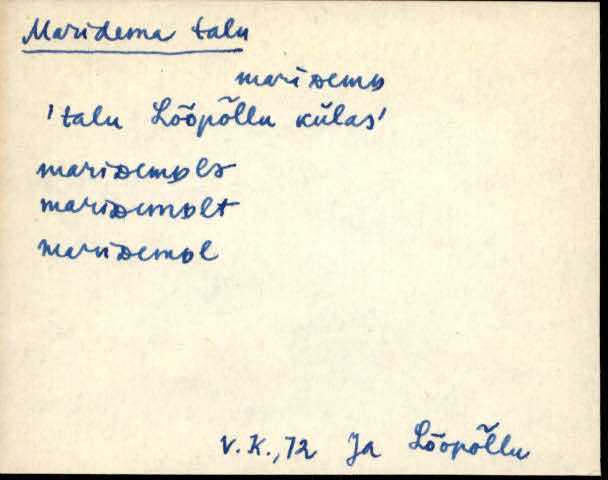 Maridema talu
mariᴅemɒ
'talu Lööpõllu külas'
mariᴅemɒlə
mariᴅemɒlt
mariᴅemɒl
V.K., 72 Ja Lööpõllu